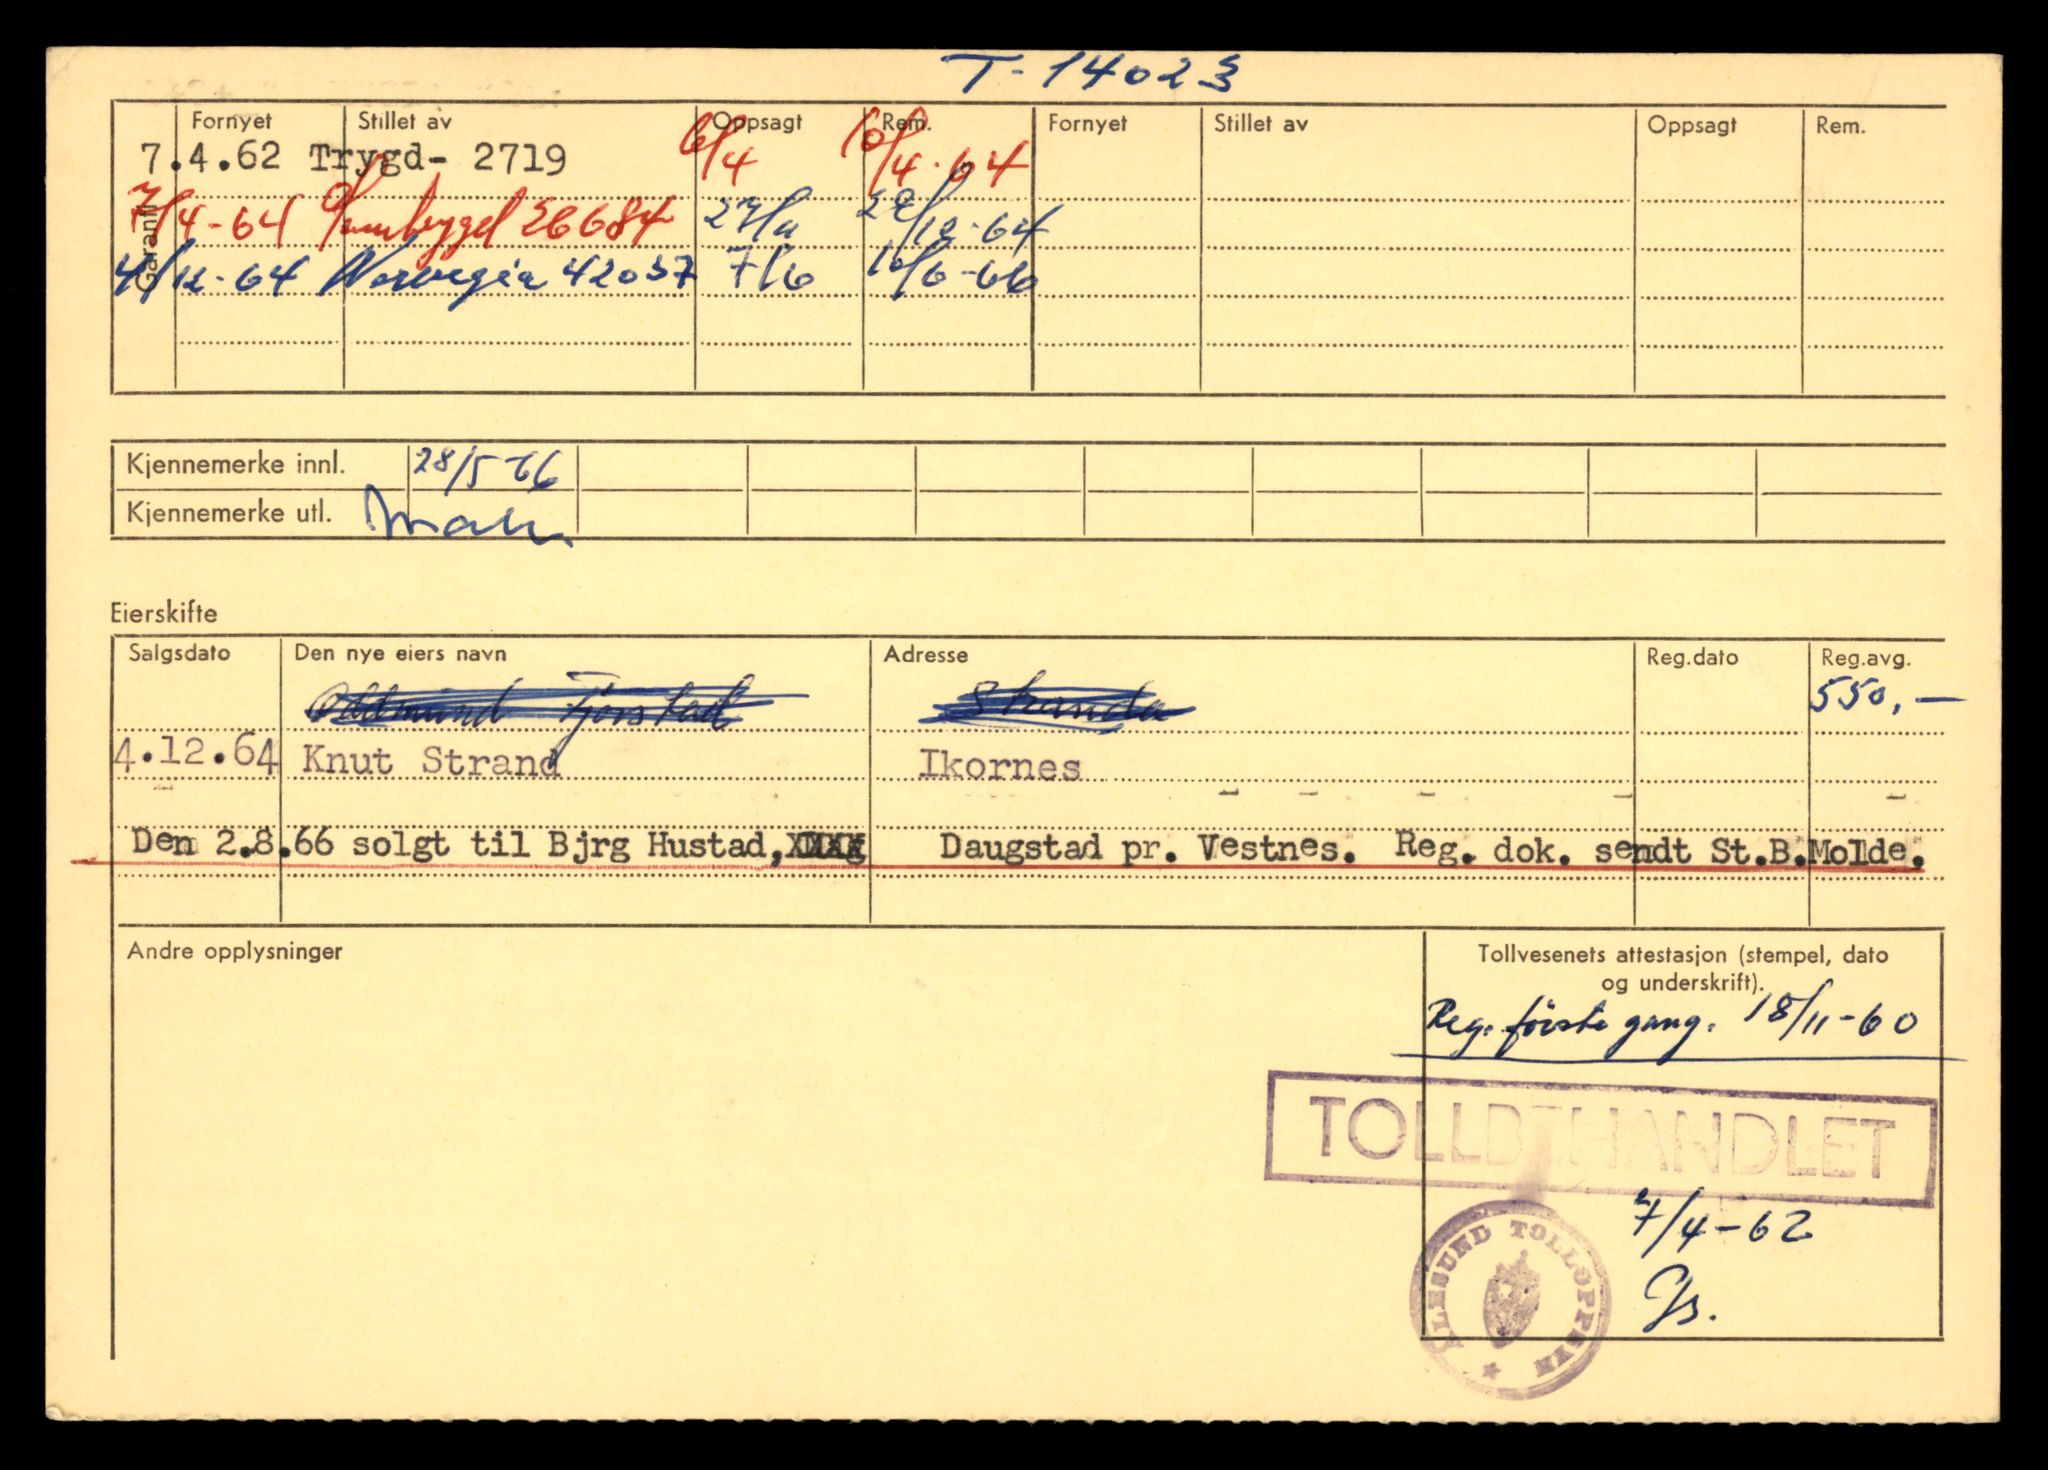 T-14023
Fornyet Stillet av Oppsagt Rem. Fornyet Stillet av Oppsagt Rem.
Garanti
7.4.62 Trygd- 2719 6/4 10/4-64
7/4-64 Samtrygd 26684 27/11 29/12-64
4/12-64 Norvegia 42037 7/6 10/6-66
Kjennemerke innl. 28/5 66
Kjennemerke utl.
Eierskifte
Salgsdato Den nye eiers navn Adresse Reg.dato Reg.avg.
Oddmund Fjørstad Stranda 550,-
4.12.64 Knut Strand Ikornes
Den 2.8.66 solgt til Bjrg Hustad, Daugstad pr. Vestnes. Reg. dok. sendt St.B.Molde.
Andre opplysninger
Tollvesenets attestasjon (stempel, dato
og underskrift).
Reg. første gang. 18/11-60
TOLLBEHANDLET
7/4-62
ÅLESUND TOLLOPPSYN